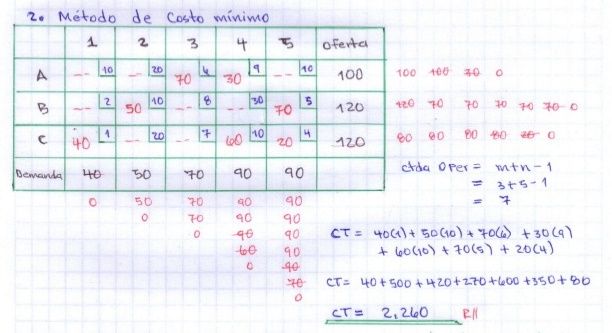 2. Método de Costo mínimo
1 2 3 4 5 Oferta
A -- 10 -- 20 70 6 30 9 -- 10 100 100 100 30 0
B -- 2 50 10 -- 8 -- 30 70 5 120 120 70 70 70 70 70 0
C 40 1 -- 20 -- 7 60 10 20 4 120 80 80 80 80 20 0
Demanda 40 50 70 90 90
0 50 70 90 90
0 70 90 90
0 90 90
60 90
0 90
70
0
ctda oper = m+n-1
= 3+5-1
= 7
CT = 40(1) + 50(10) + 70(6) + 30(9)
+ 60(10) + 70(5) + 20(4)
CT = 40+500+420+270+600+350+80
CT = 2,260 R//